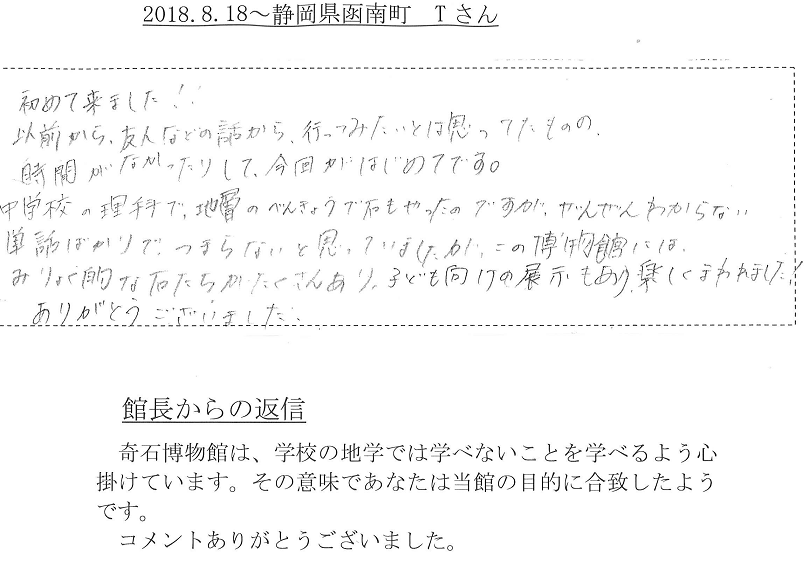 2018.8.18～静岡県函南町　Tさん
初めて来ました!!
以前から、友人などの話から、行ってみたいとは思ってたものの、
時間がなかったりして、今回がはじめてです。
中学校の理科で、地層のべんきょうで石もやったのですが、ぜんぜんわからない
単語ばかりで、つまらないと思っていましたが、この博物館には、
みりょく的な石たちがたくさんあり、子ども向けの展示もあり、楽しくまわれました!
ありがとうございました。
館長からの返信
奇石博物館は、学校の地学では学べないことを学べるよう心
掛けています。その意味であなたは当館の目的に合致したよう
です。
コメントありがとうございました。